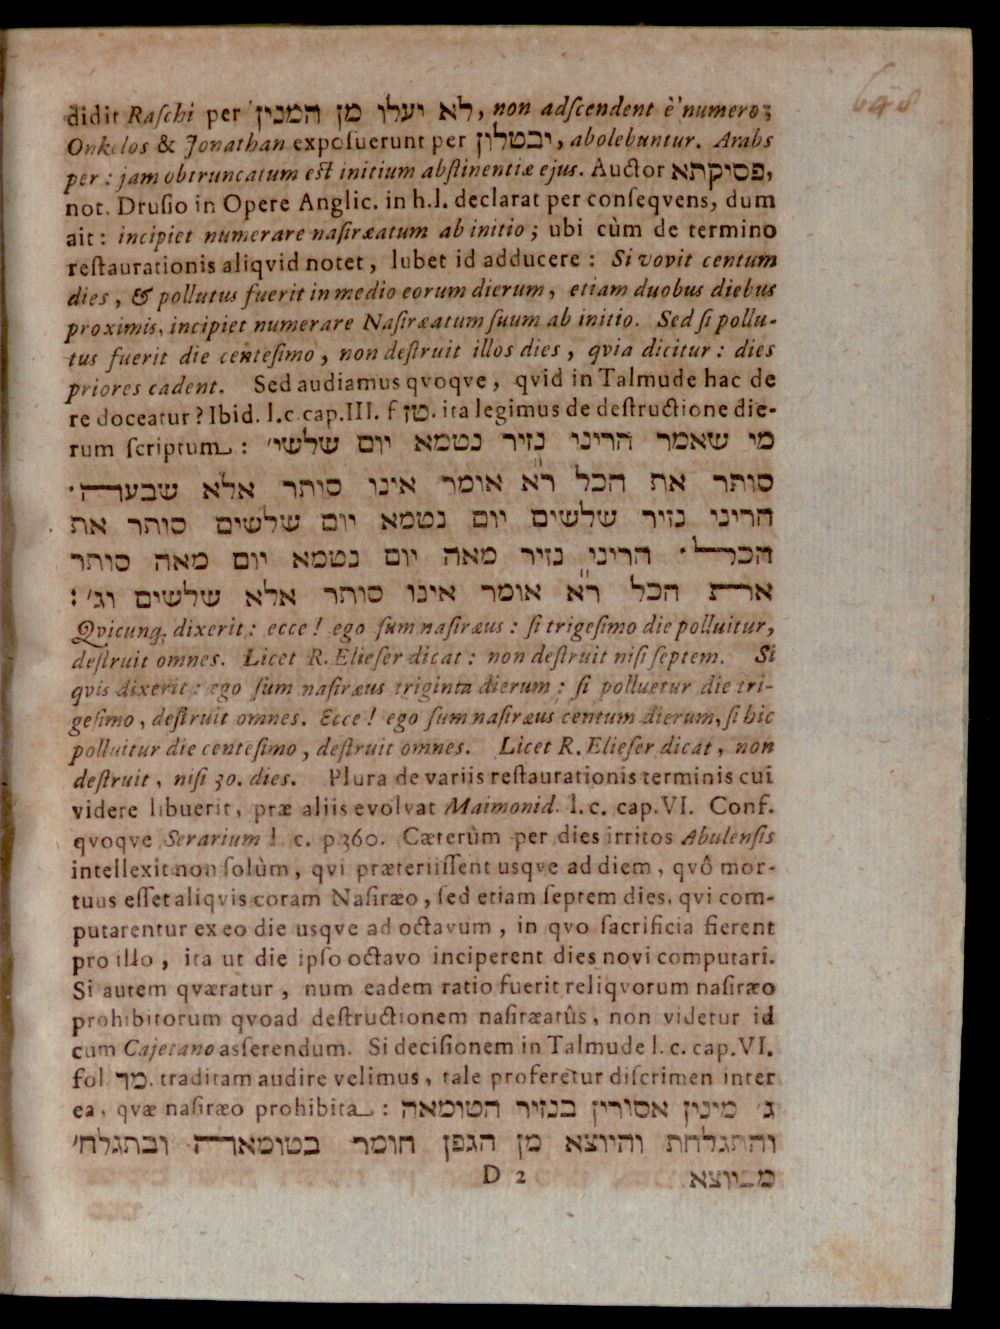 648
didit Raſchi per לא יעלו מן המנין, non adſcendent è numero;
Onkelos & Jonathan expoſuerunt per יבטלון, abolebuntur. Arabs
per: jam obtruncatum eſt initium abſtinentiæ ejus. Auctor פסיקתא,
not. Druſio in Opere Anglic. in h.l. declarat per conſeqvens, dum
ait: incipiet numerare naſiræatum ab initio; ubi cùm de termino
reſtaurationis aliqvid notet, lubet id adducere: Si vovit centum
dies, & pollutus fuerit in medio eorum dierum, etiam duobus diebus
proximis, incipiet numerare Naſiræatum ſuum ab initio. Sed ſi pollu-
tus fuerit die centeſimo, non deſtruit illos dies, qvia dicitur: dies
priores cadent. Sed audiamus qvoqve, qvid in Talmude hac de
re doceatur? Ibid. l.c. cap. III. f טז. ita legimus de deſtructione die-
rum ſcriptum: מי שאמר הריני נזיר נטמא יום שלשי׳
סותר את הכל ר״א אומר אינו סותר אלא שבעה.
הריני נזיר שלשים יום נטמא יום שלשים סותר את
הכל. הריני נזיר מאה יום נטמא יום מאה סותר
את הכל ר״א אומר אינו סותר אלא שלשים וג׳:
Qvicunq; dixerit: ecce! ego ſum naſiræus: ſi trigeſimo die polluitur,
deſtruit omnes. Licet R. Elieſer dicat: non deſtruit niſi ſeptem. Si
qvis dixerit: ego ſum naſiræus triginta dierum: ſi polluetur die tri-
geſimo, deſtruit omnes. Ecce! ego ſum naſiræus centum dierum, ſi hic
polluitur die centeſimo, deſtruit omnes. Licet R. Elieſer dicat, non
deſtruit, niſi 30. dies. Plura de variis reſtaurationis terminis cui
videre libuerit, præ aliis evolvat Maimonid. l. c. cap. VI. Conf.
qvoqve Serarium l. c. p 360. Cæterùm per dies irritos Abulenſis
intellexit non ſolùm, qvi præteriiſſent usqve ad diem, qvô mor-
tuus eſſet aliqvis coram Naſiræo, ſed etiam ſeptem dies, qvi com-
putarentur ex eo die usqve ad octavum, in qvo ſacrificia fierent
pro illo, ita ut die ipſo octavo inciperent dies novi computari.
Si autem qværatur, num eadem ratio fuerit reliqvorum naſiræo
prohibitorum qvoad deſtructionem naſiræatûs, non videtur id
cum Cajetano asſerendum. Si deciſionem in Talmude l. c. cap. VI.
fol. מד. traditam audire velimus, tale proferetur diſcrimen inter
ea, qvæ naſiræo prohibita: ג׳ מינין אסורין בנזיר הטומאה
והתגלחת והיוצא מן הגפן חומר בטומאה ובתגלח׳
D 2 מיוצא